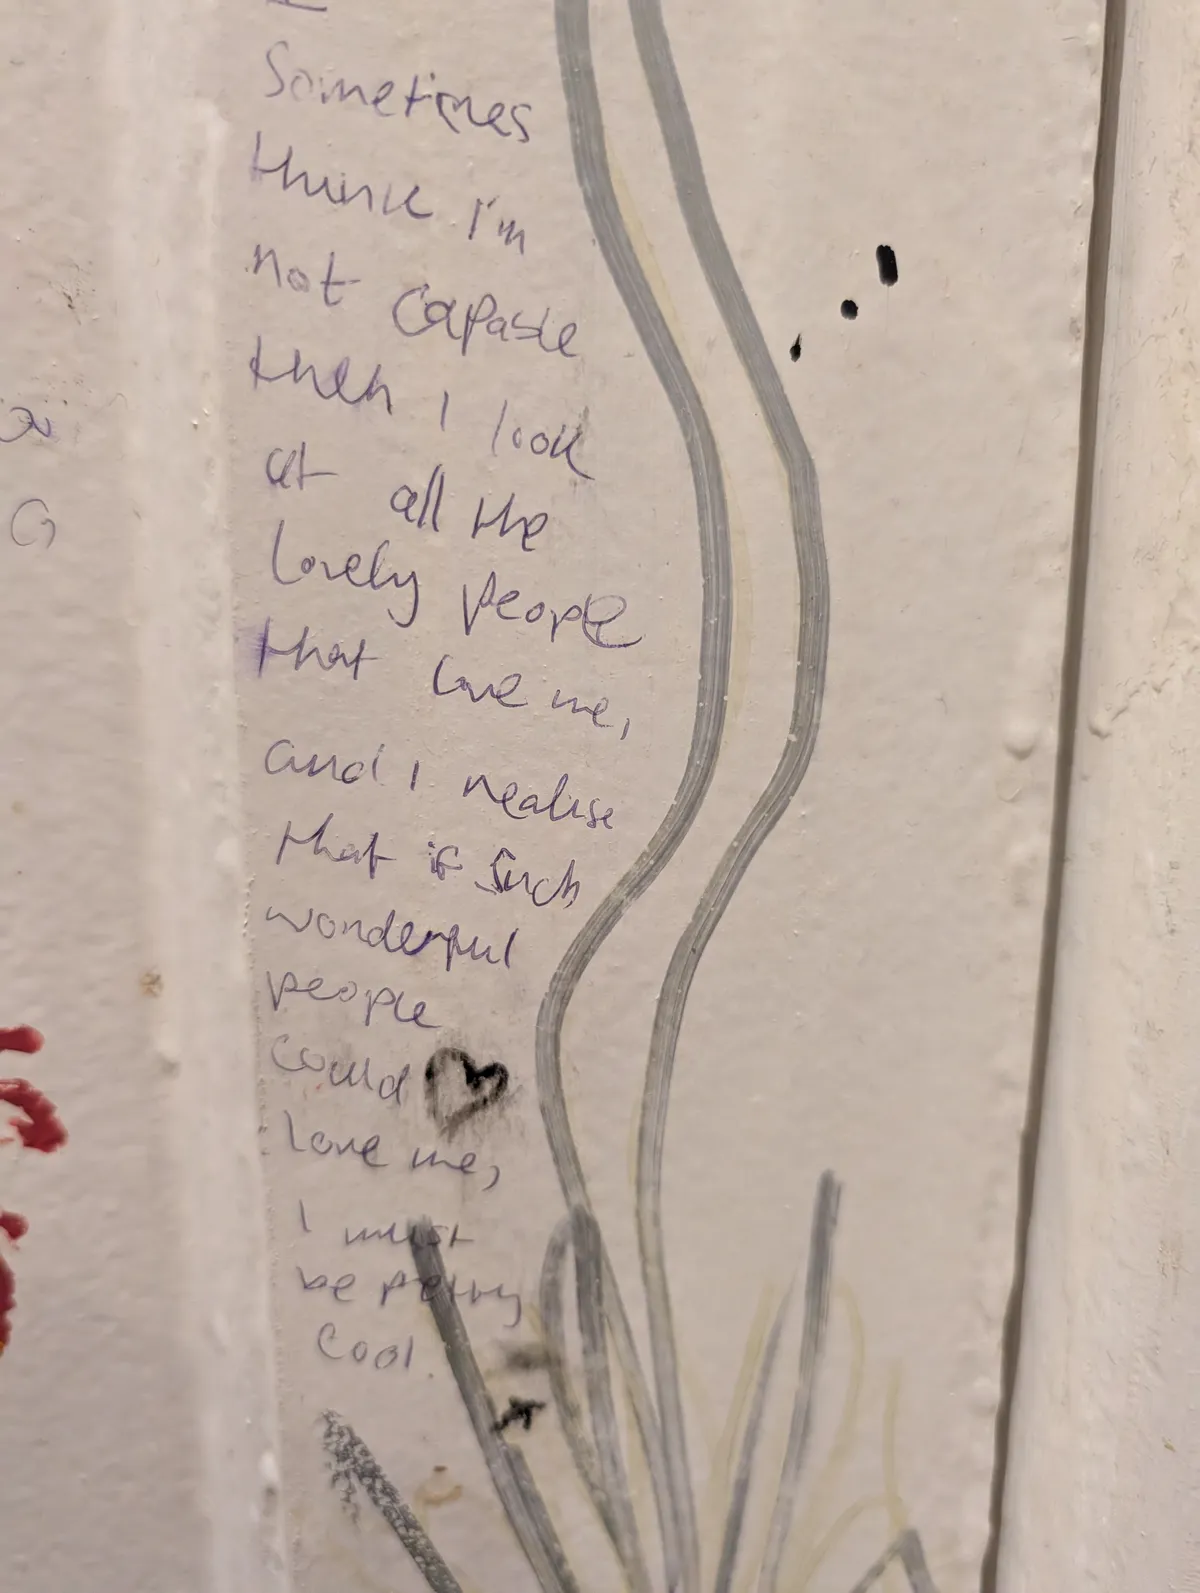 I
Sometimes
think i'm
not capable
then I look
at all the
lovely people
that love me,
and I realise
that if such
wonderful
people
could
love me,
I must
be pretty
cool